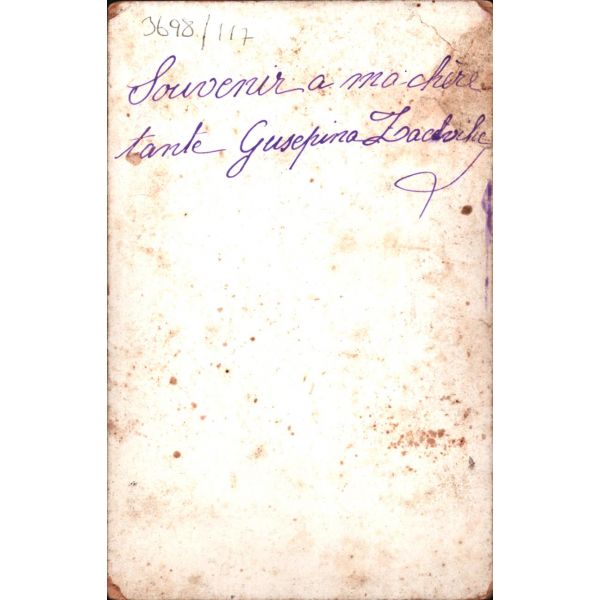 3698/117
Souvenir a ma chère
tante Gusepina